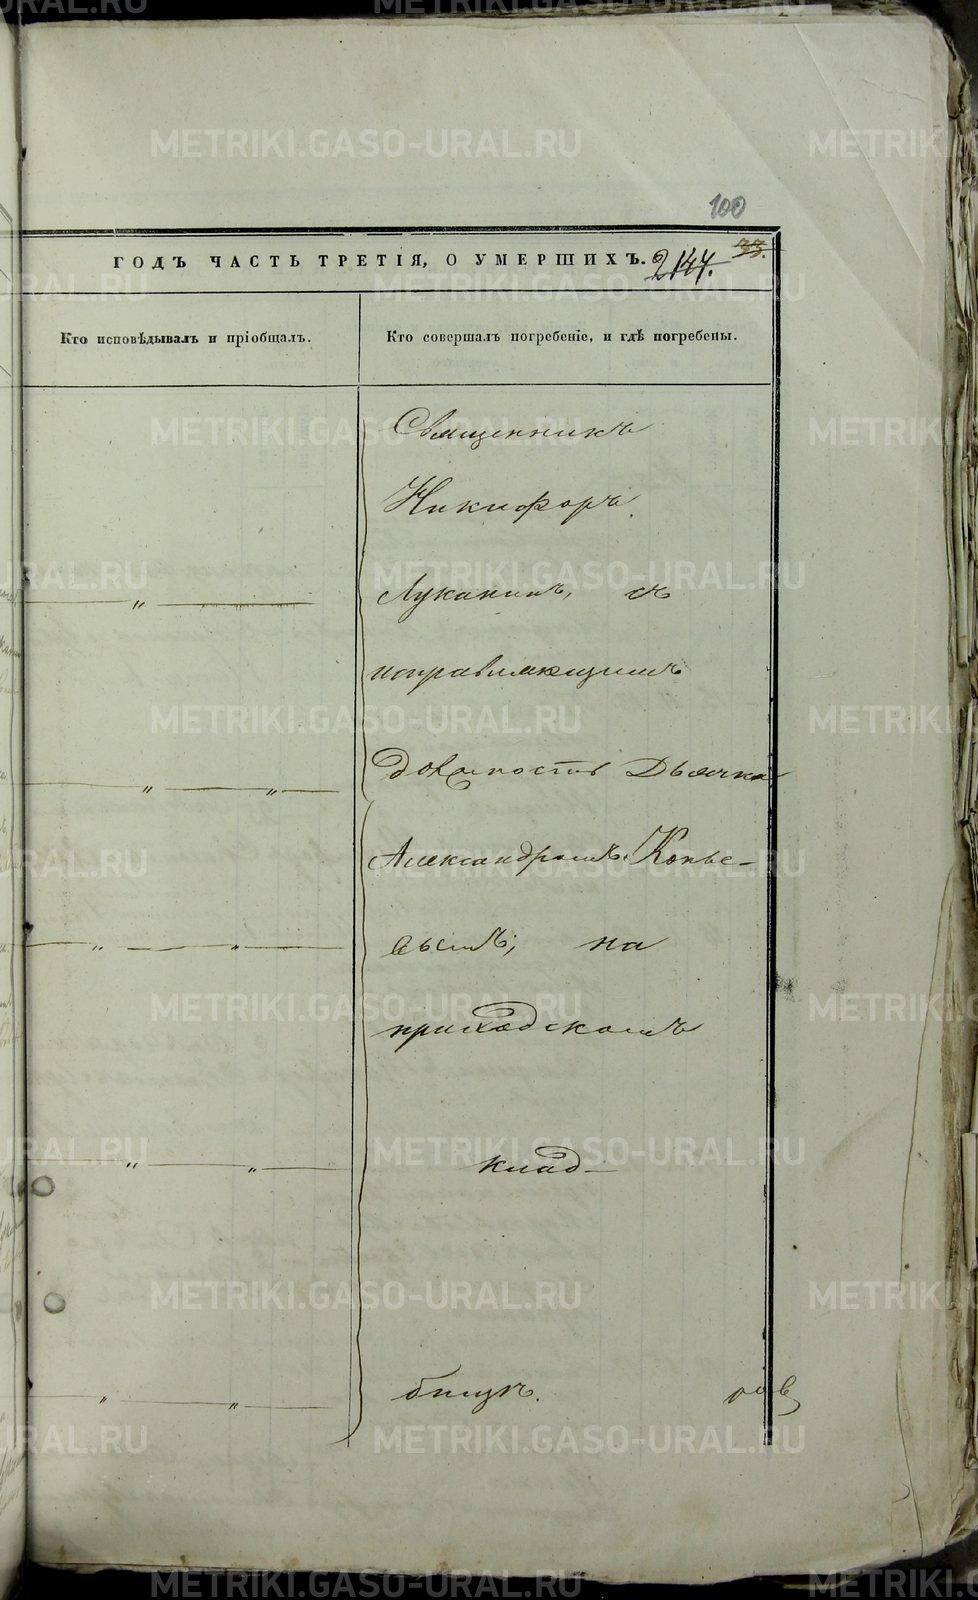 100
ГОДЪ ЧАСТЬ ТРЕТІЯ, О УМЕРШИХЪ. 2144. 33.
Кто исповѣдывалъ и пріобщалъ.
Кто совершалъ погребеніе, и гдѣ погребены.
Священникъ
Никифоръ
Луканинъ, съ
исправляющимъ
должность Дьячка
Александромъ Копье-
вымъ, на
приходскомъ
клад-
бищѣ.
METRIKI.GASO-URAL.RU